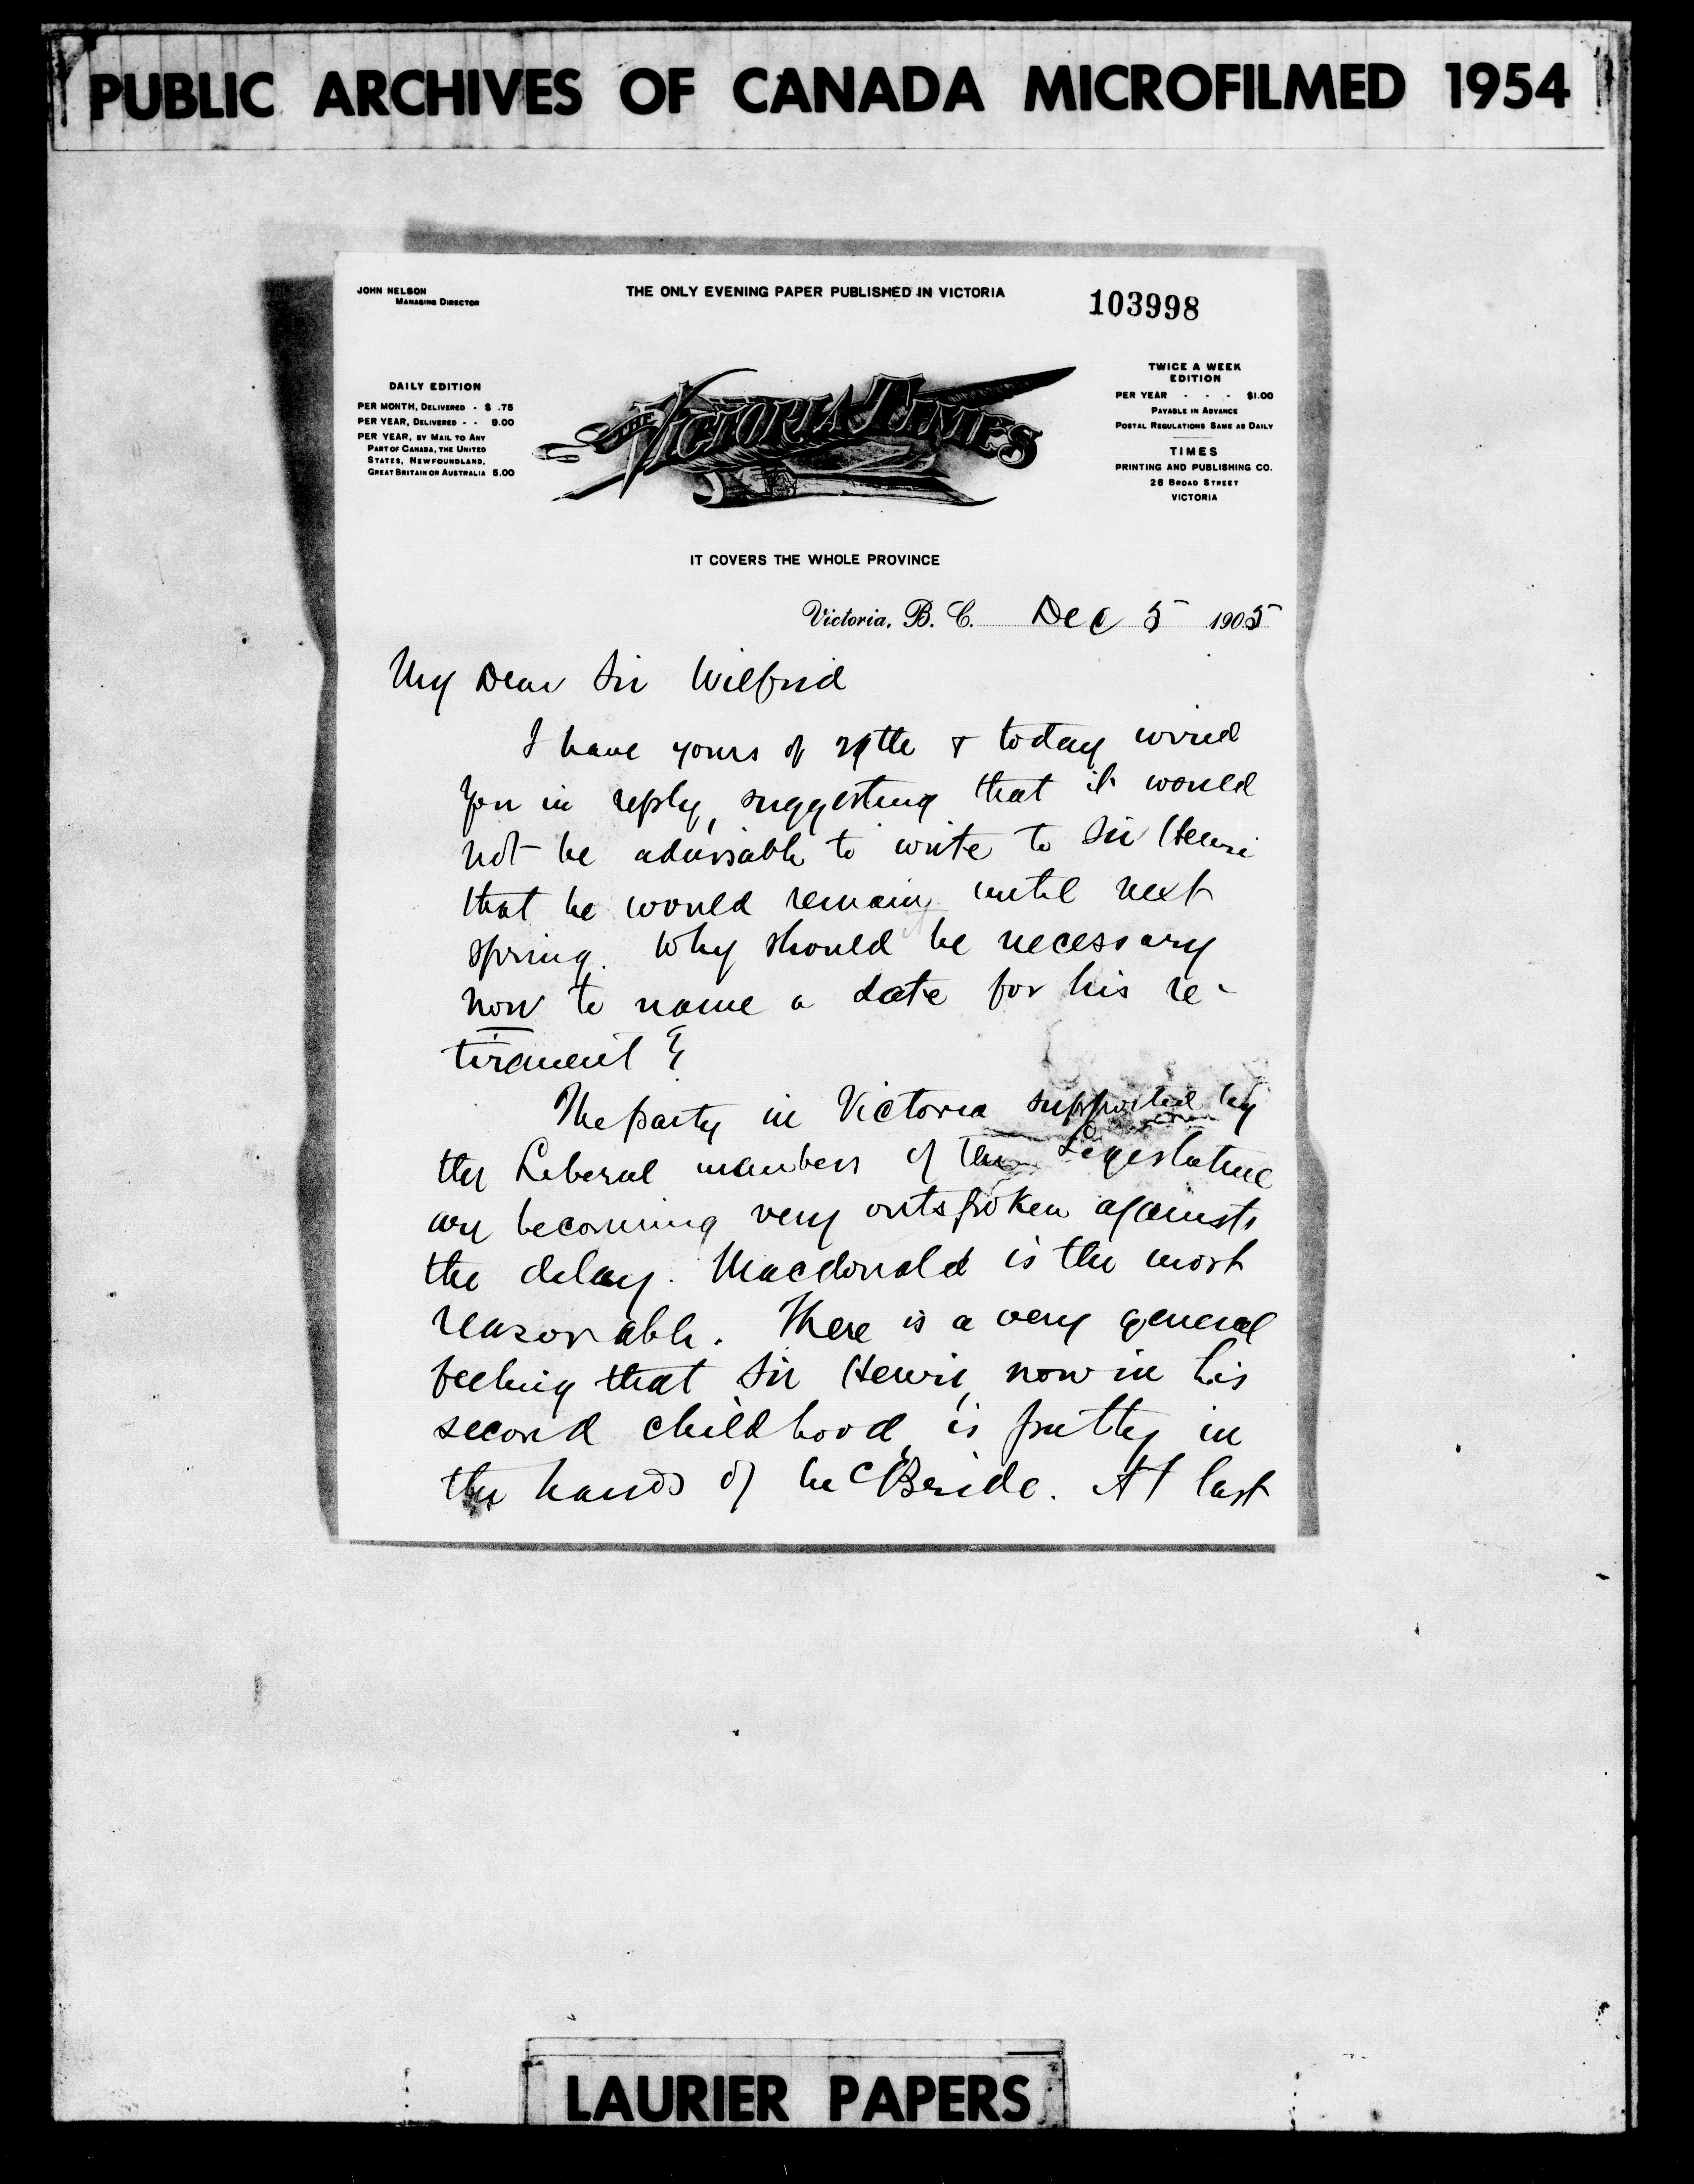 PUBLIC ARCHIVES OF CANADA MICROFILMED 1954
JOHN NELSON
MANAGING DIRECTOR
THE ONLY EVENING PAPER PUBLISHED IN VICTORIA
103998
DAILY EDITION
PER MONTH, DELIVERED - $ .75
PER YEAR, DELIVERED - - 9.00
PER YEAR, BY MAIL TO ANY
PART OF CANADA, THE UNITED
STATES, NEWFOUNDLAND,
GREAT BRITAIN OR AUSTRALIA 5.00
THE VICTORIA TIMES
TWICE A WEEK
EDITION
PER YEAR - - - $1.00
PAYABLE IN ADVANCE
POSTAL REGULATIONS SAME AS DAILY
TIMES
PRINTING AND PUBLISHING CO.
26 BROAD STREET
VICTORIA
IT COVERS THE WHOLE PROVINCE
Victoria, B. C. Dec 5 1905
My Dear Sir Wilfrid
I have yours of 29th & today wired
you in reply, suggesting that it would
not be advisable to write to Sir Henri
that he would remain until next
spring. Why should it be necessary
now to name a date for his re-
tirement?
The party in Victoria supported by
the Liberal members of the Legislature
are becoming very outspoken against
the delay. Macdonald is the most
reasonable. There is a very general
feeling that Sir Henri, now in his
second childhood, is putty in
the hands of McBride. At last
LAURIER PAPERS